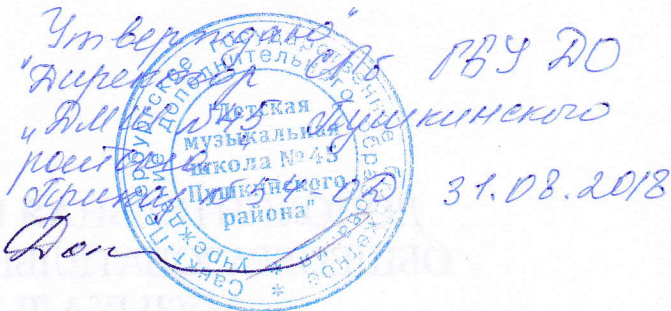 "Утверждаю"
Директор СПб ГБУ ДО
"ДМШ № 45 Пушкинского
района"
Приказ № 54-ОД 31.08.2018
Санкт-Петербургское государственное бюджетное
учреждение дополнительного образования
"Детская
музыкальная
школа № 45
Пушкинского
района"